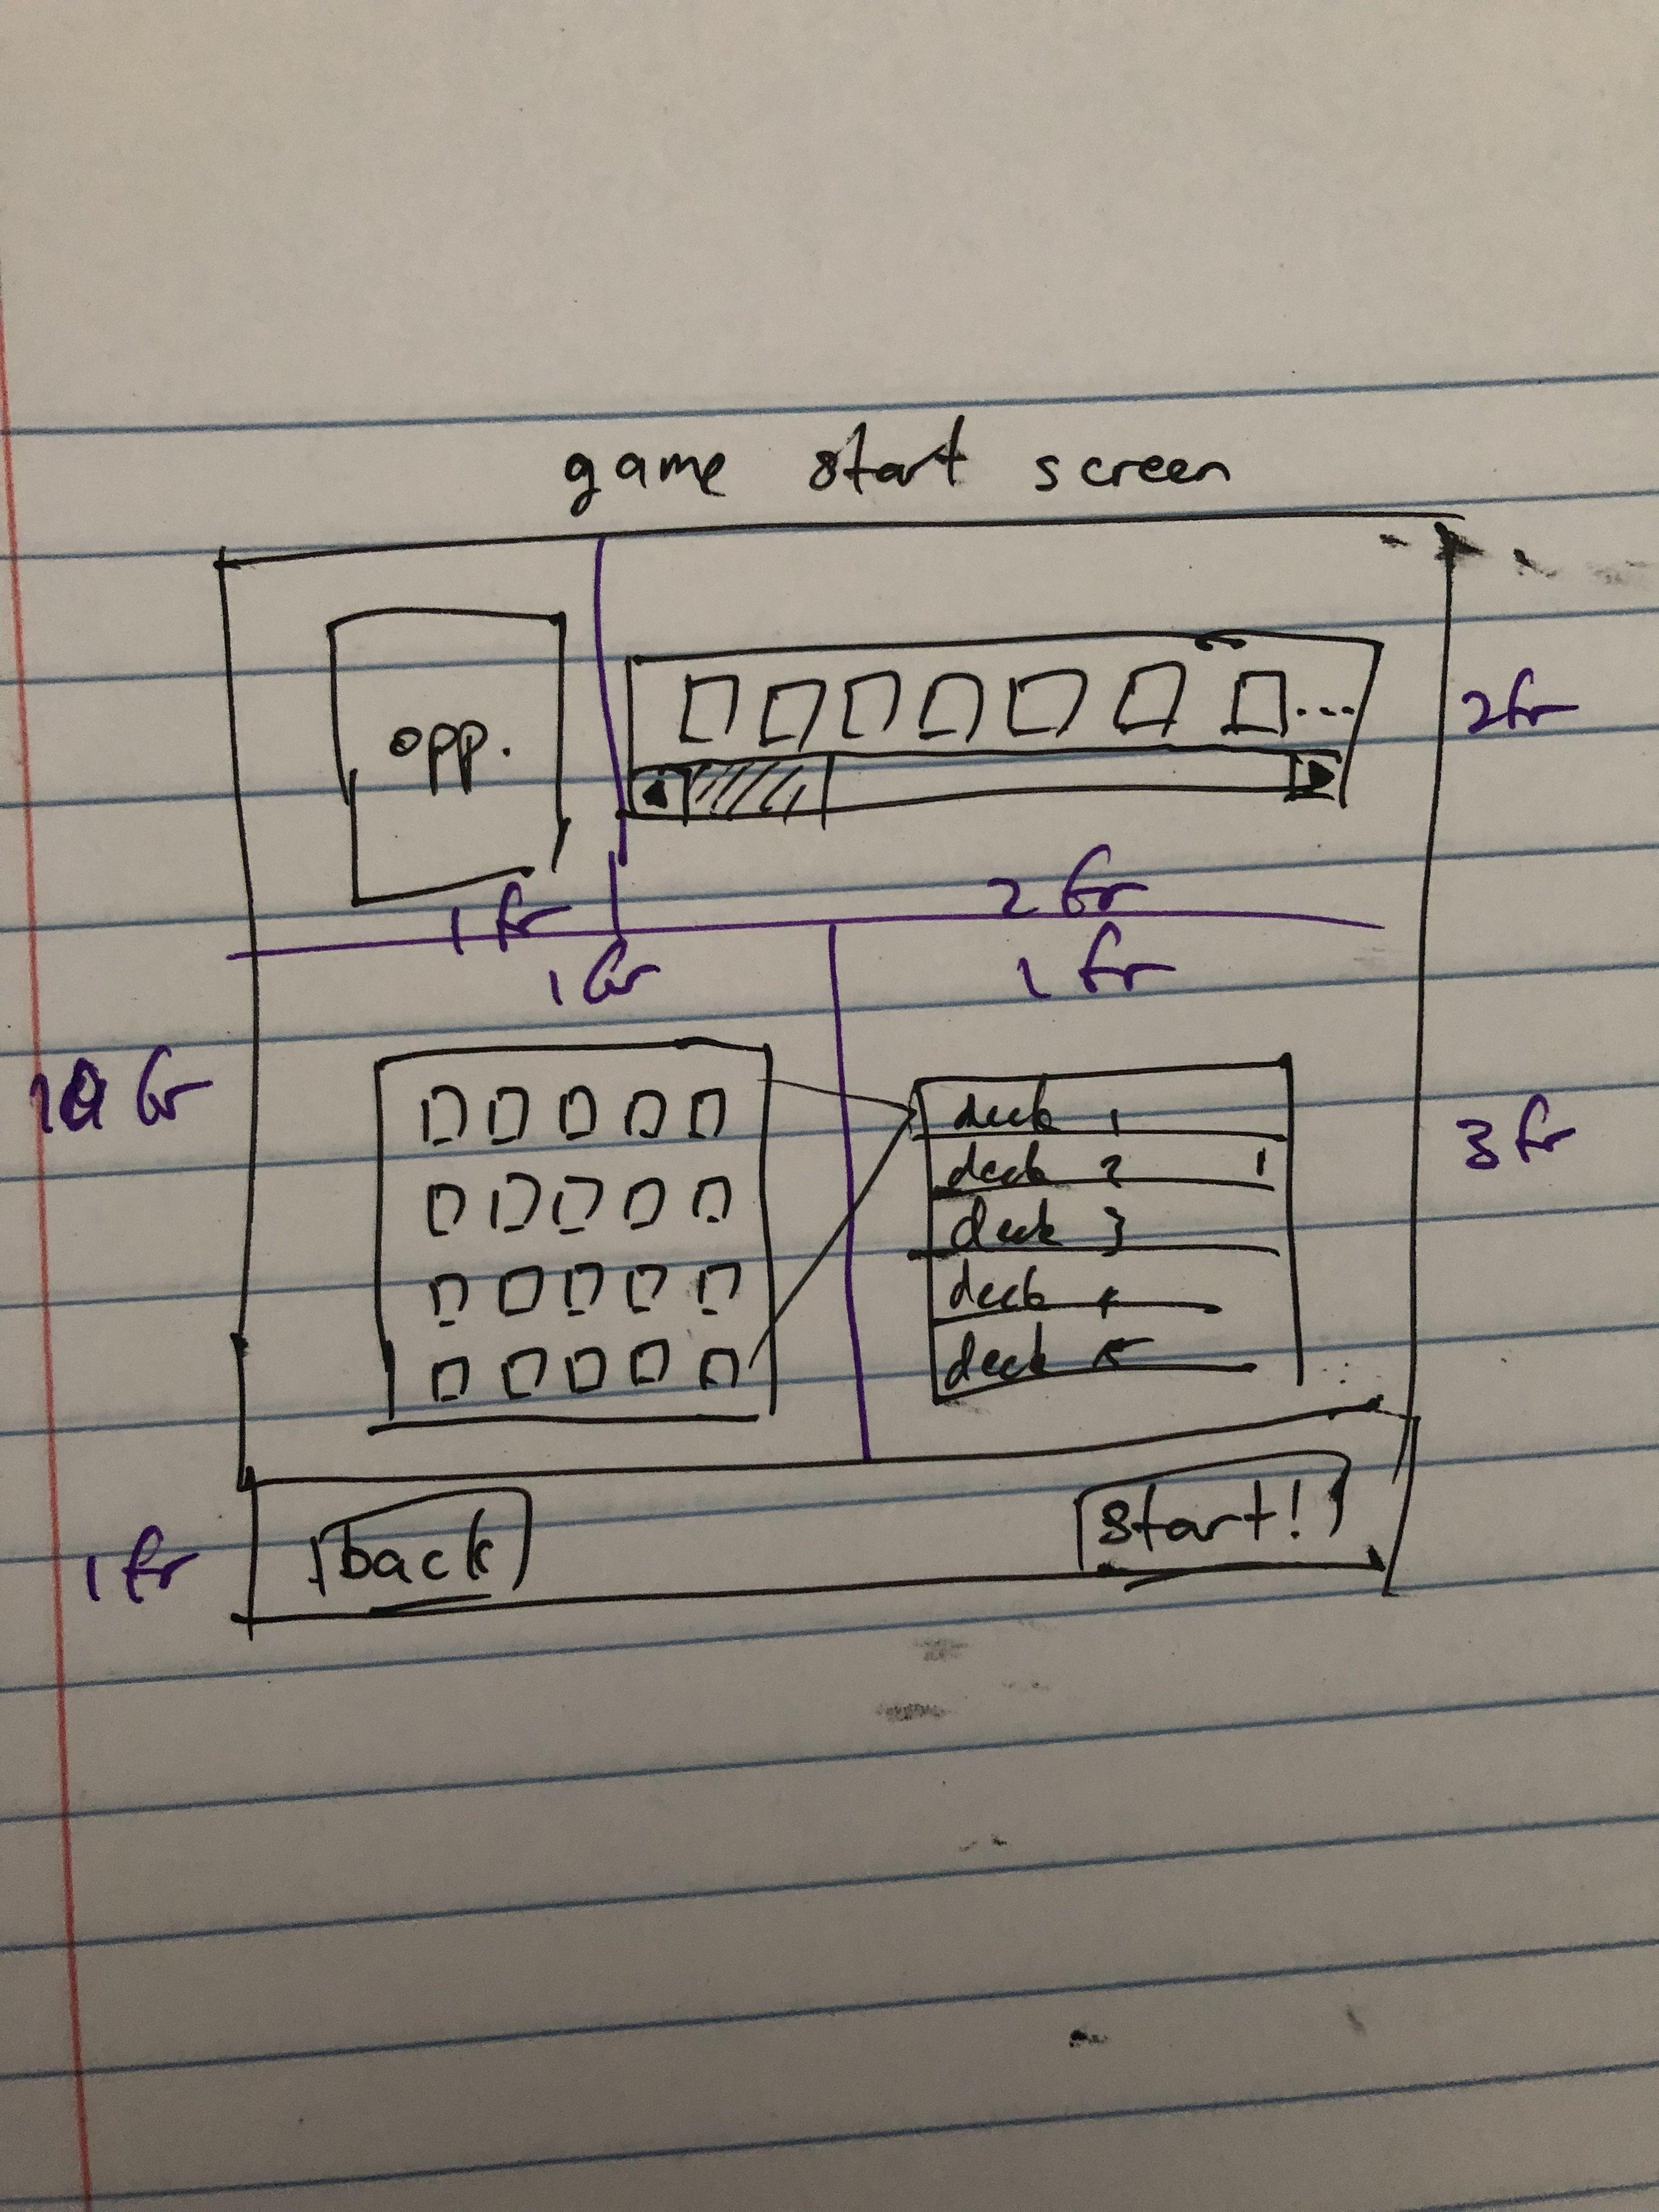 game start screen
opp.
2fr
1 fr
2 fr
1 fr
1 fr
fr
3 fr
deck 1
deck 2
deck 3
deck 4
deck 5
back
start!
1 fr